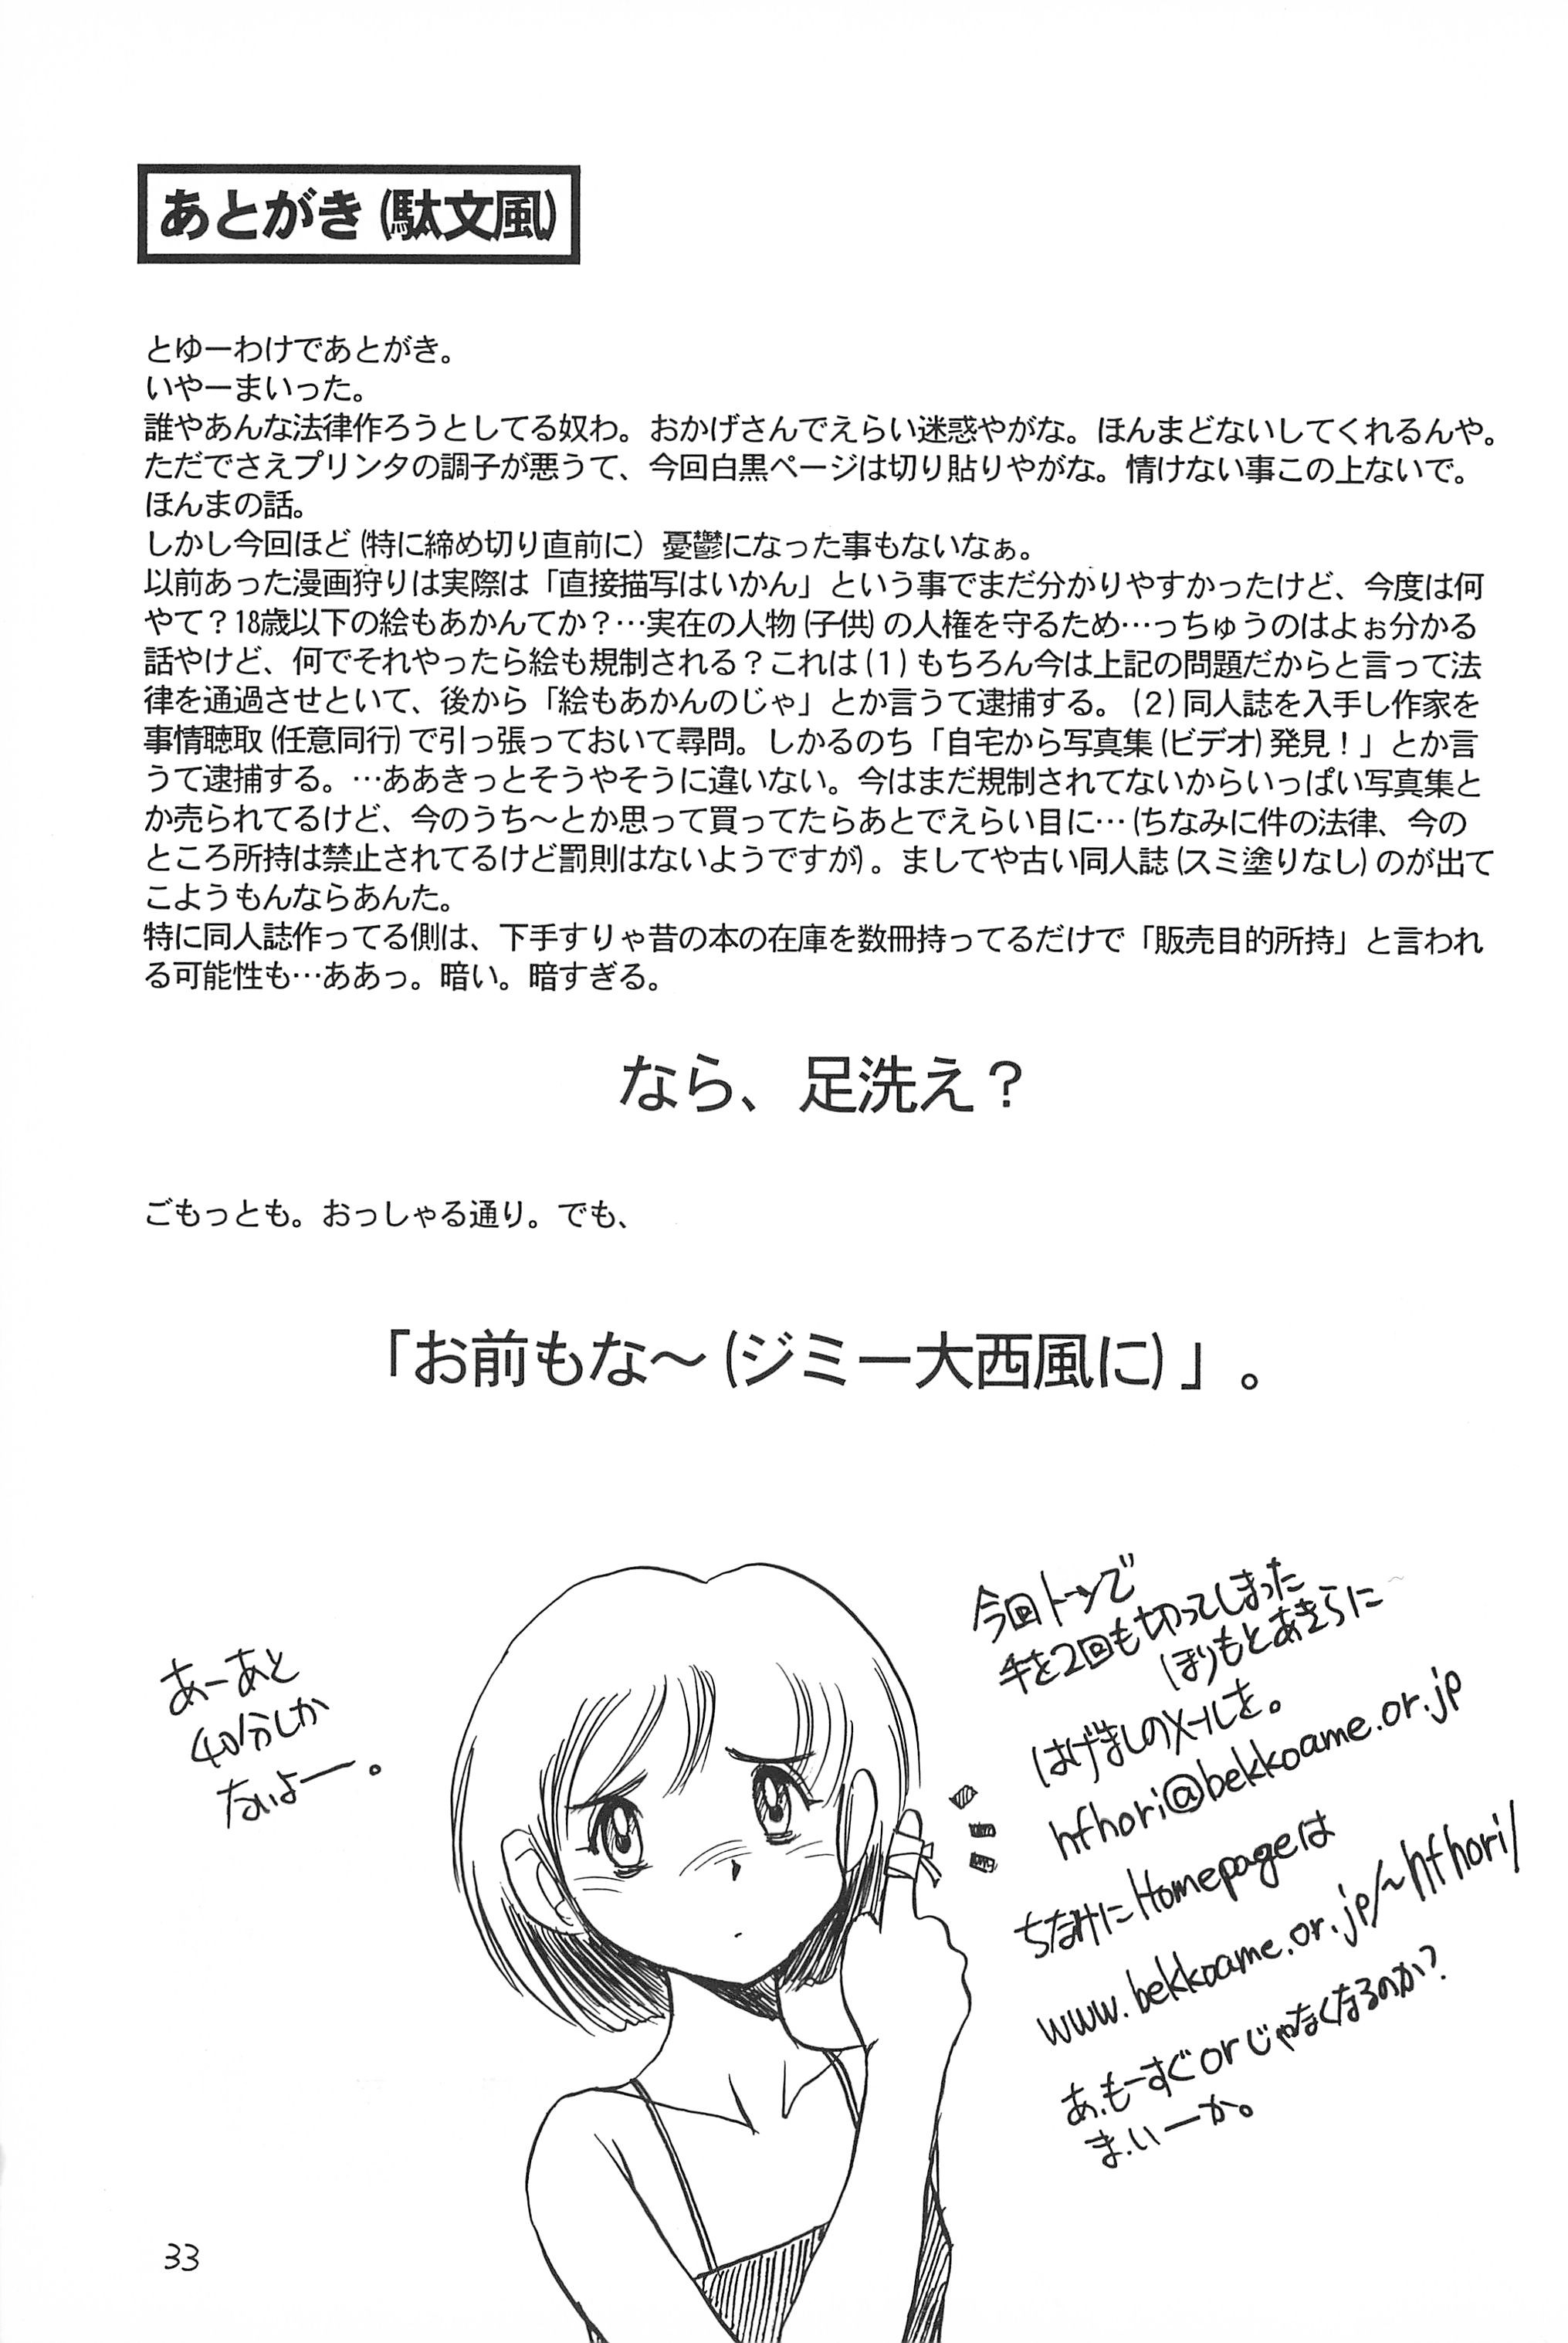 あとがき(駄文風)
とゆーわけであとがき。
いやーまいった。
誰やあんな法律作ろうとしてる奴わ。おかげさんでえらい迷惑やがな。ほんまどないしてくれるんや。
ただでさえプリンタの調子が悪うて、今回白黒ページは切り貼りやがな。情けない事この上ないで。
ほんまの話。
しかし今回ほど(特に締め切り直前に)憂鬱になった事もないなぁ。
以前あった漫画狩りは実際は「直接描写はいかん」という事でまだ分かりやすかったけど、今度は何
やて?18歳以下の絵もあかんてか?…実在の人物(子供)の人権を守るため…っちゅうのはよぉ分かる
話やけど、何でそれやったら絵も規制される?これは(1)もちろん今は上記の問題だからと言って法
律を通過させといて、後から「絵もあかんのじゃ」とか言うて逮捕する。(2)同人誌を入手し作家を
事情聴取(任意同行)で引っ張っておいて尋問。しかるのち「自宅から写真集(ビデオ)発見!」とか言
うて逮捕する。…ああきっとそうやそうに違いない。今はまだ規制されてないからいっぱい写真集と
か売られてるけど、今のうち〜とか思って買ってたらあとでえらい目に…(ちなみに件の法律、今の
ところ所持は禁止されてるけど罰則はないようですが)。ましてや古い同人誌(スミ塗りなし)のが出て
こようもんならあんた。
特に同人誌作ってる側は、下手すりゃ昔の本の在庫を数冊持ってるだけで「販売目的所持」と言われ
る可能性も…ああっ。暗い。暗すぎる。
なら、足洗え?
ごもっとも。おっしゃる通り。でも、
「お前もな〜(ジミー大西風に)」。
あーあと
40分しか
ないよー。
今回トーンで
手を2回も切ってしまった
ほりもとあきらに
はげましのメールを。
hfhori@bekkoame.or.jp
ちなみにHomepageは
www.bekkoame.or.jp/~hfhori/
あ、もーすぐorじゃなくなるのか?
ま、いーか。
33